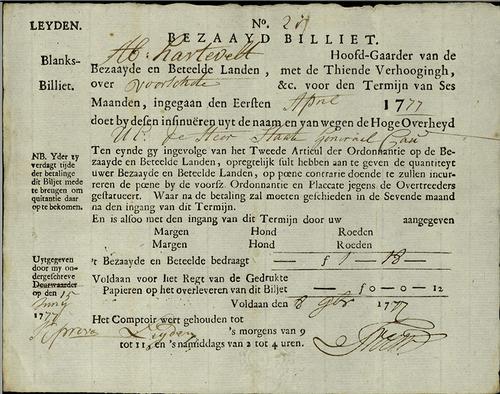 LEYDEN.
No. 
BEZAAYD BILLIET.
Blanks-Billiet.
Ab: Kartevelt Hoofd-Gaarder van de
Bezaayde en Beteelde Landen, met de Thiende Verhoogingh,
over Voorschote &c. voor den Termijn van Ses
Maanden, ingegaan den Eersten April 1777
doet by desen insinuëren uyt de naam en van wegen de Hoge Overheyd
de Heer Staats Generael
NB. Yder zy verdagt tijde der betalinge dit Biljet mede te breugen om quitantie daar op te bekomen.
Ten eynde gy ingevolge van het Tweede Articul der Ordonnantie op de Be-
zaayde en Beteelde Landen, opregtelijk sult hebben aan te geven de quantiteyt
uwer Bezaayde en Beteelde Landen, op pœne contrarie doende te zullen incur-
reren de pœne by de voorsz. Ordonnantie en Placcate jegens de Overtreeders
gestatueert. Waar na de betaling zal moeten geschieden in de Sevende maand
na den ingang van dit Termijn.
En is alsoo met den ingang van dit Termijn door uw aangegeven
Margen Hond Roeden
Margen Hond Roeden
't Bezaayde en Beteelde bedraagt — f 1 - 18 -
Uytgegeven door my ondergeschreve Deurwaarder op den 15 Juny 1777
Voldaan voor het Regt van de Gedrukte
Papieren op het overleveren van dit Biljet — f 0 — 0 — 12
Voldaan den 8 9br 1777
Het Comptoir wert gehouden tot
Leyden 's morgens van 9
tot 11, en 's namiddags van 2 tot 4 uren.